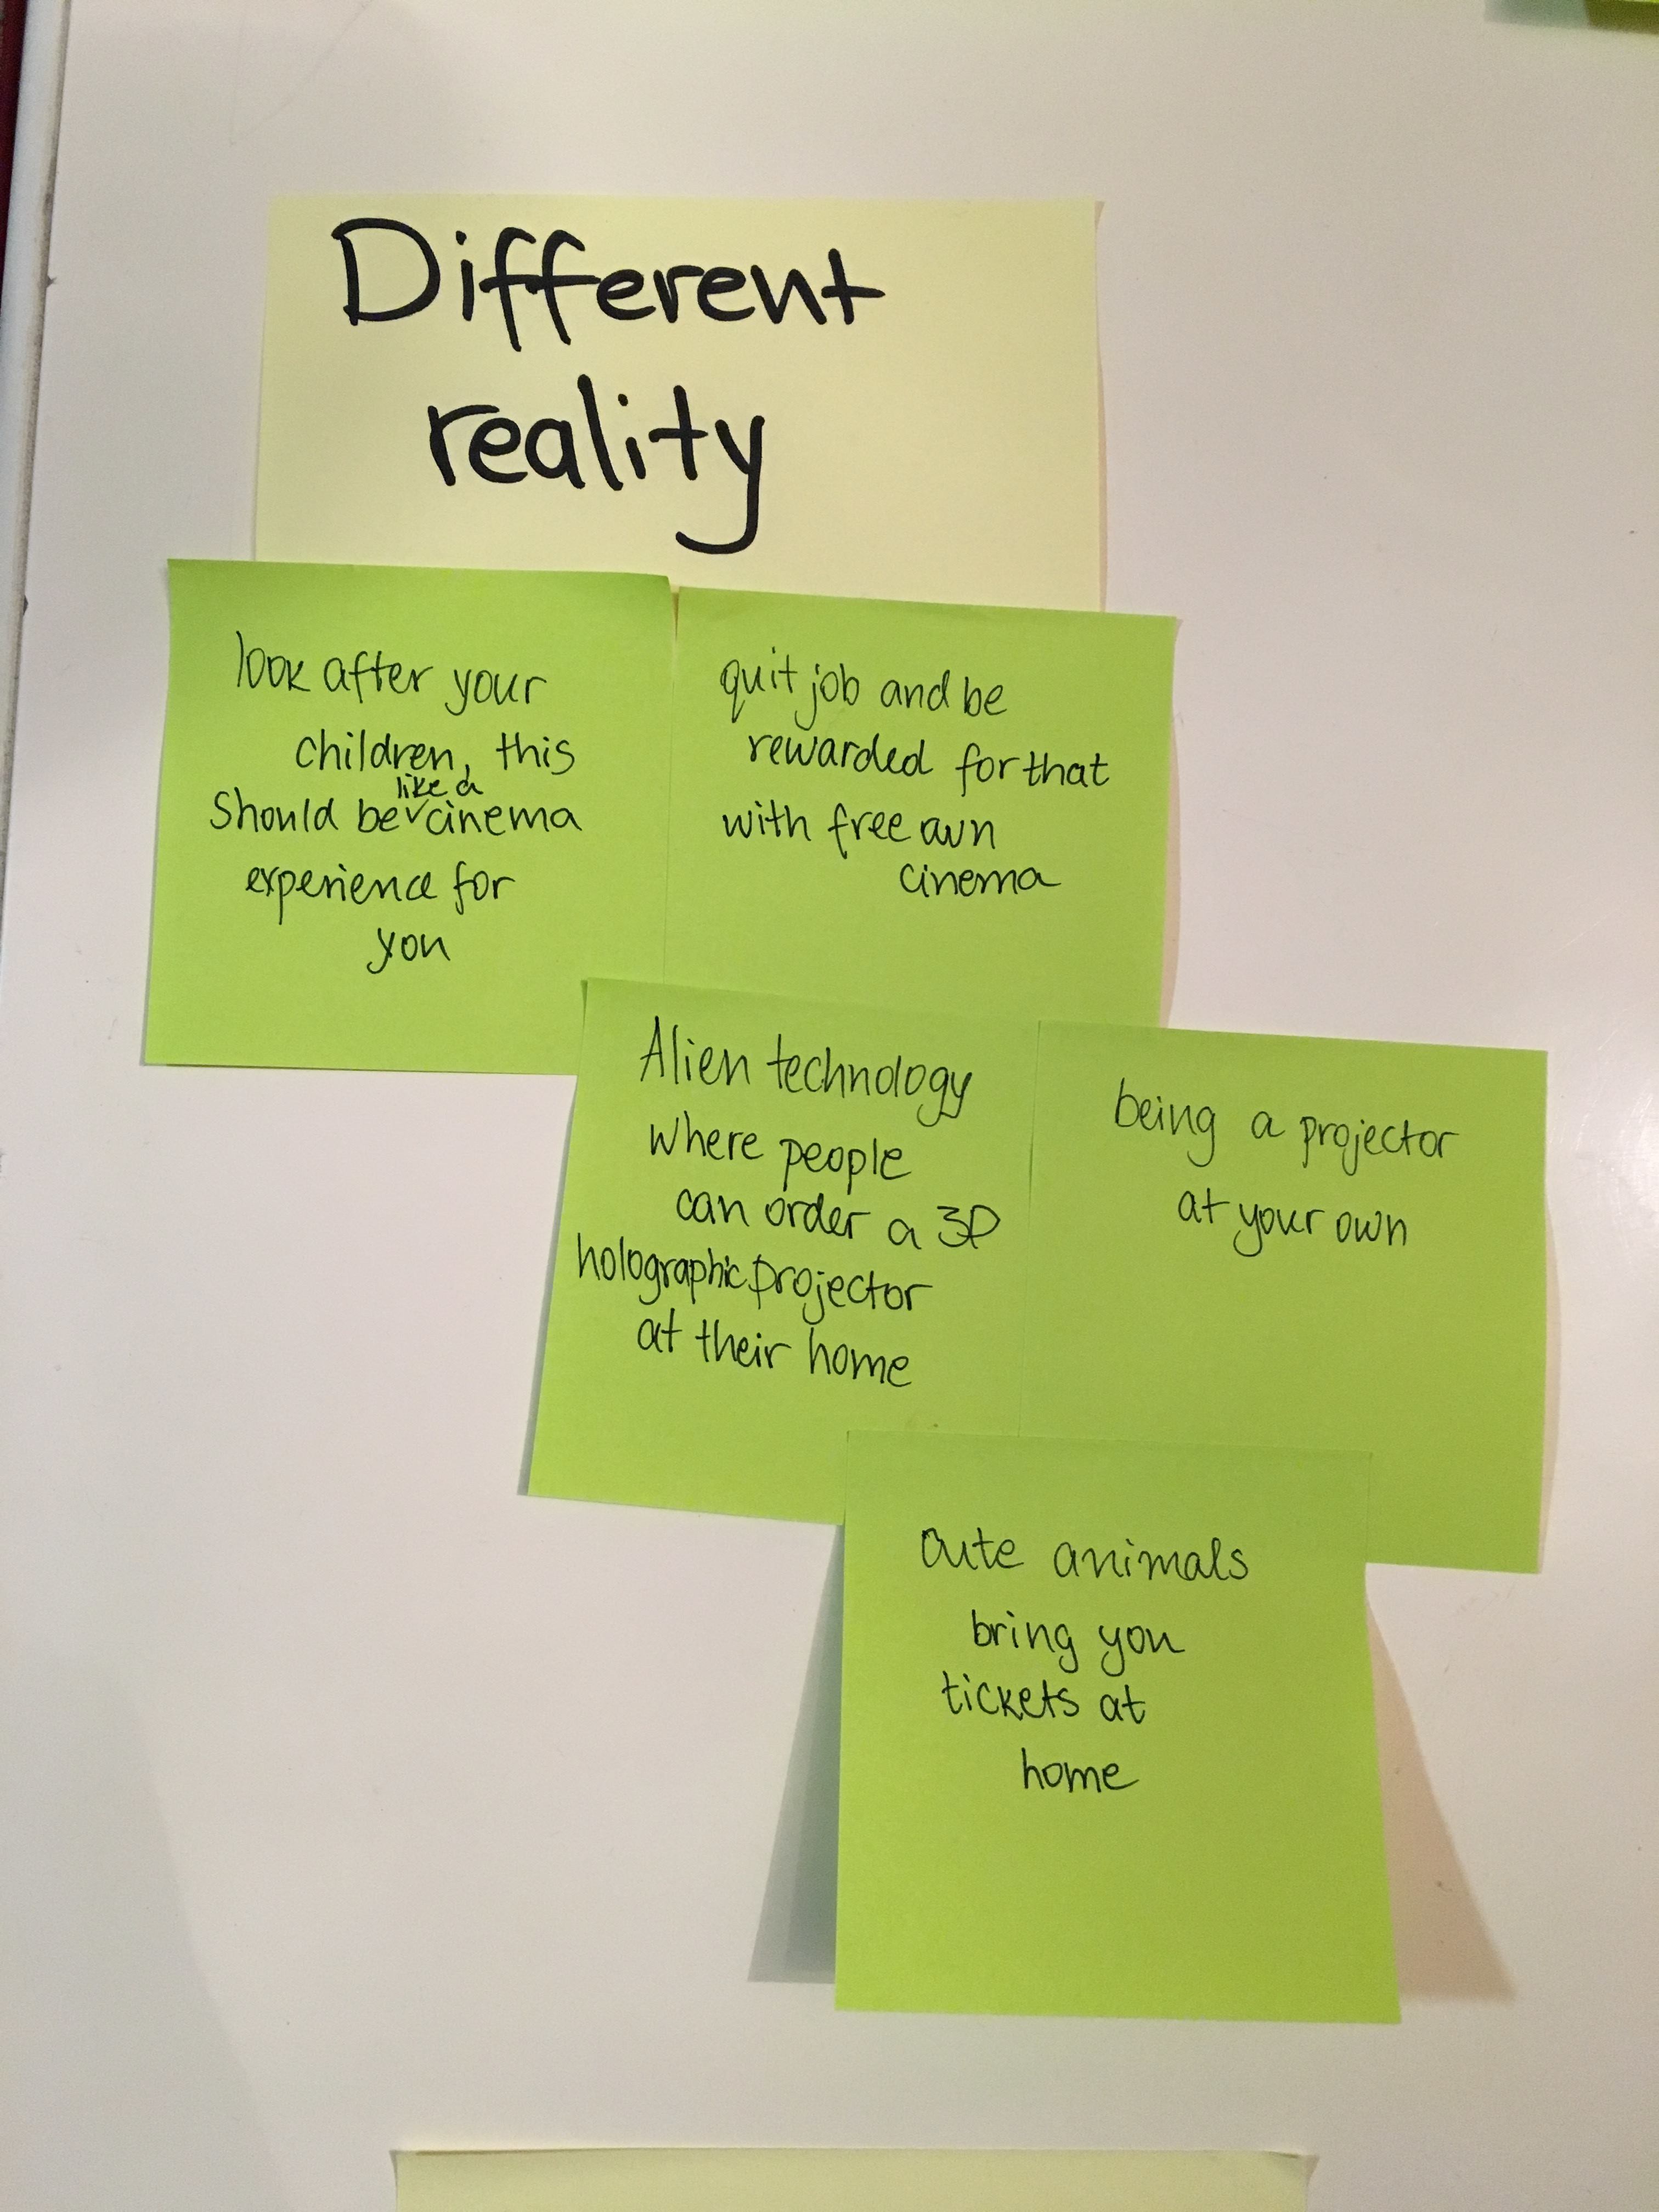 Different
reality
look after your
children, this
should be like a cinema
experience for
you
quit job and be
rewarded for that
with free own
cinema
Alien technology
where people
can order a 3D
holographic projector
at their home
being a projector
at your own
cute animals
bring you
tickets at
home